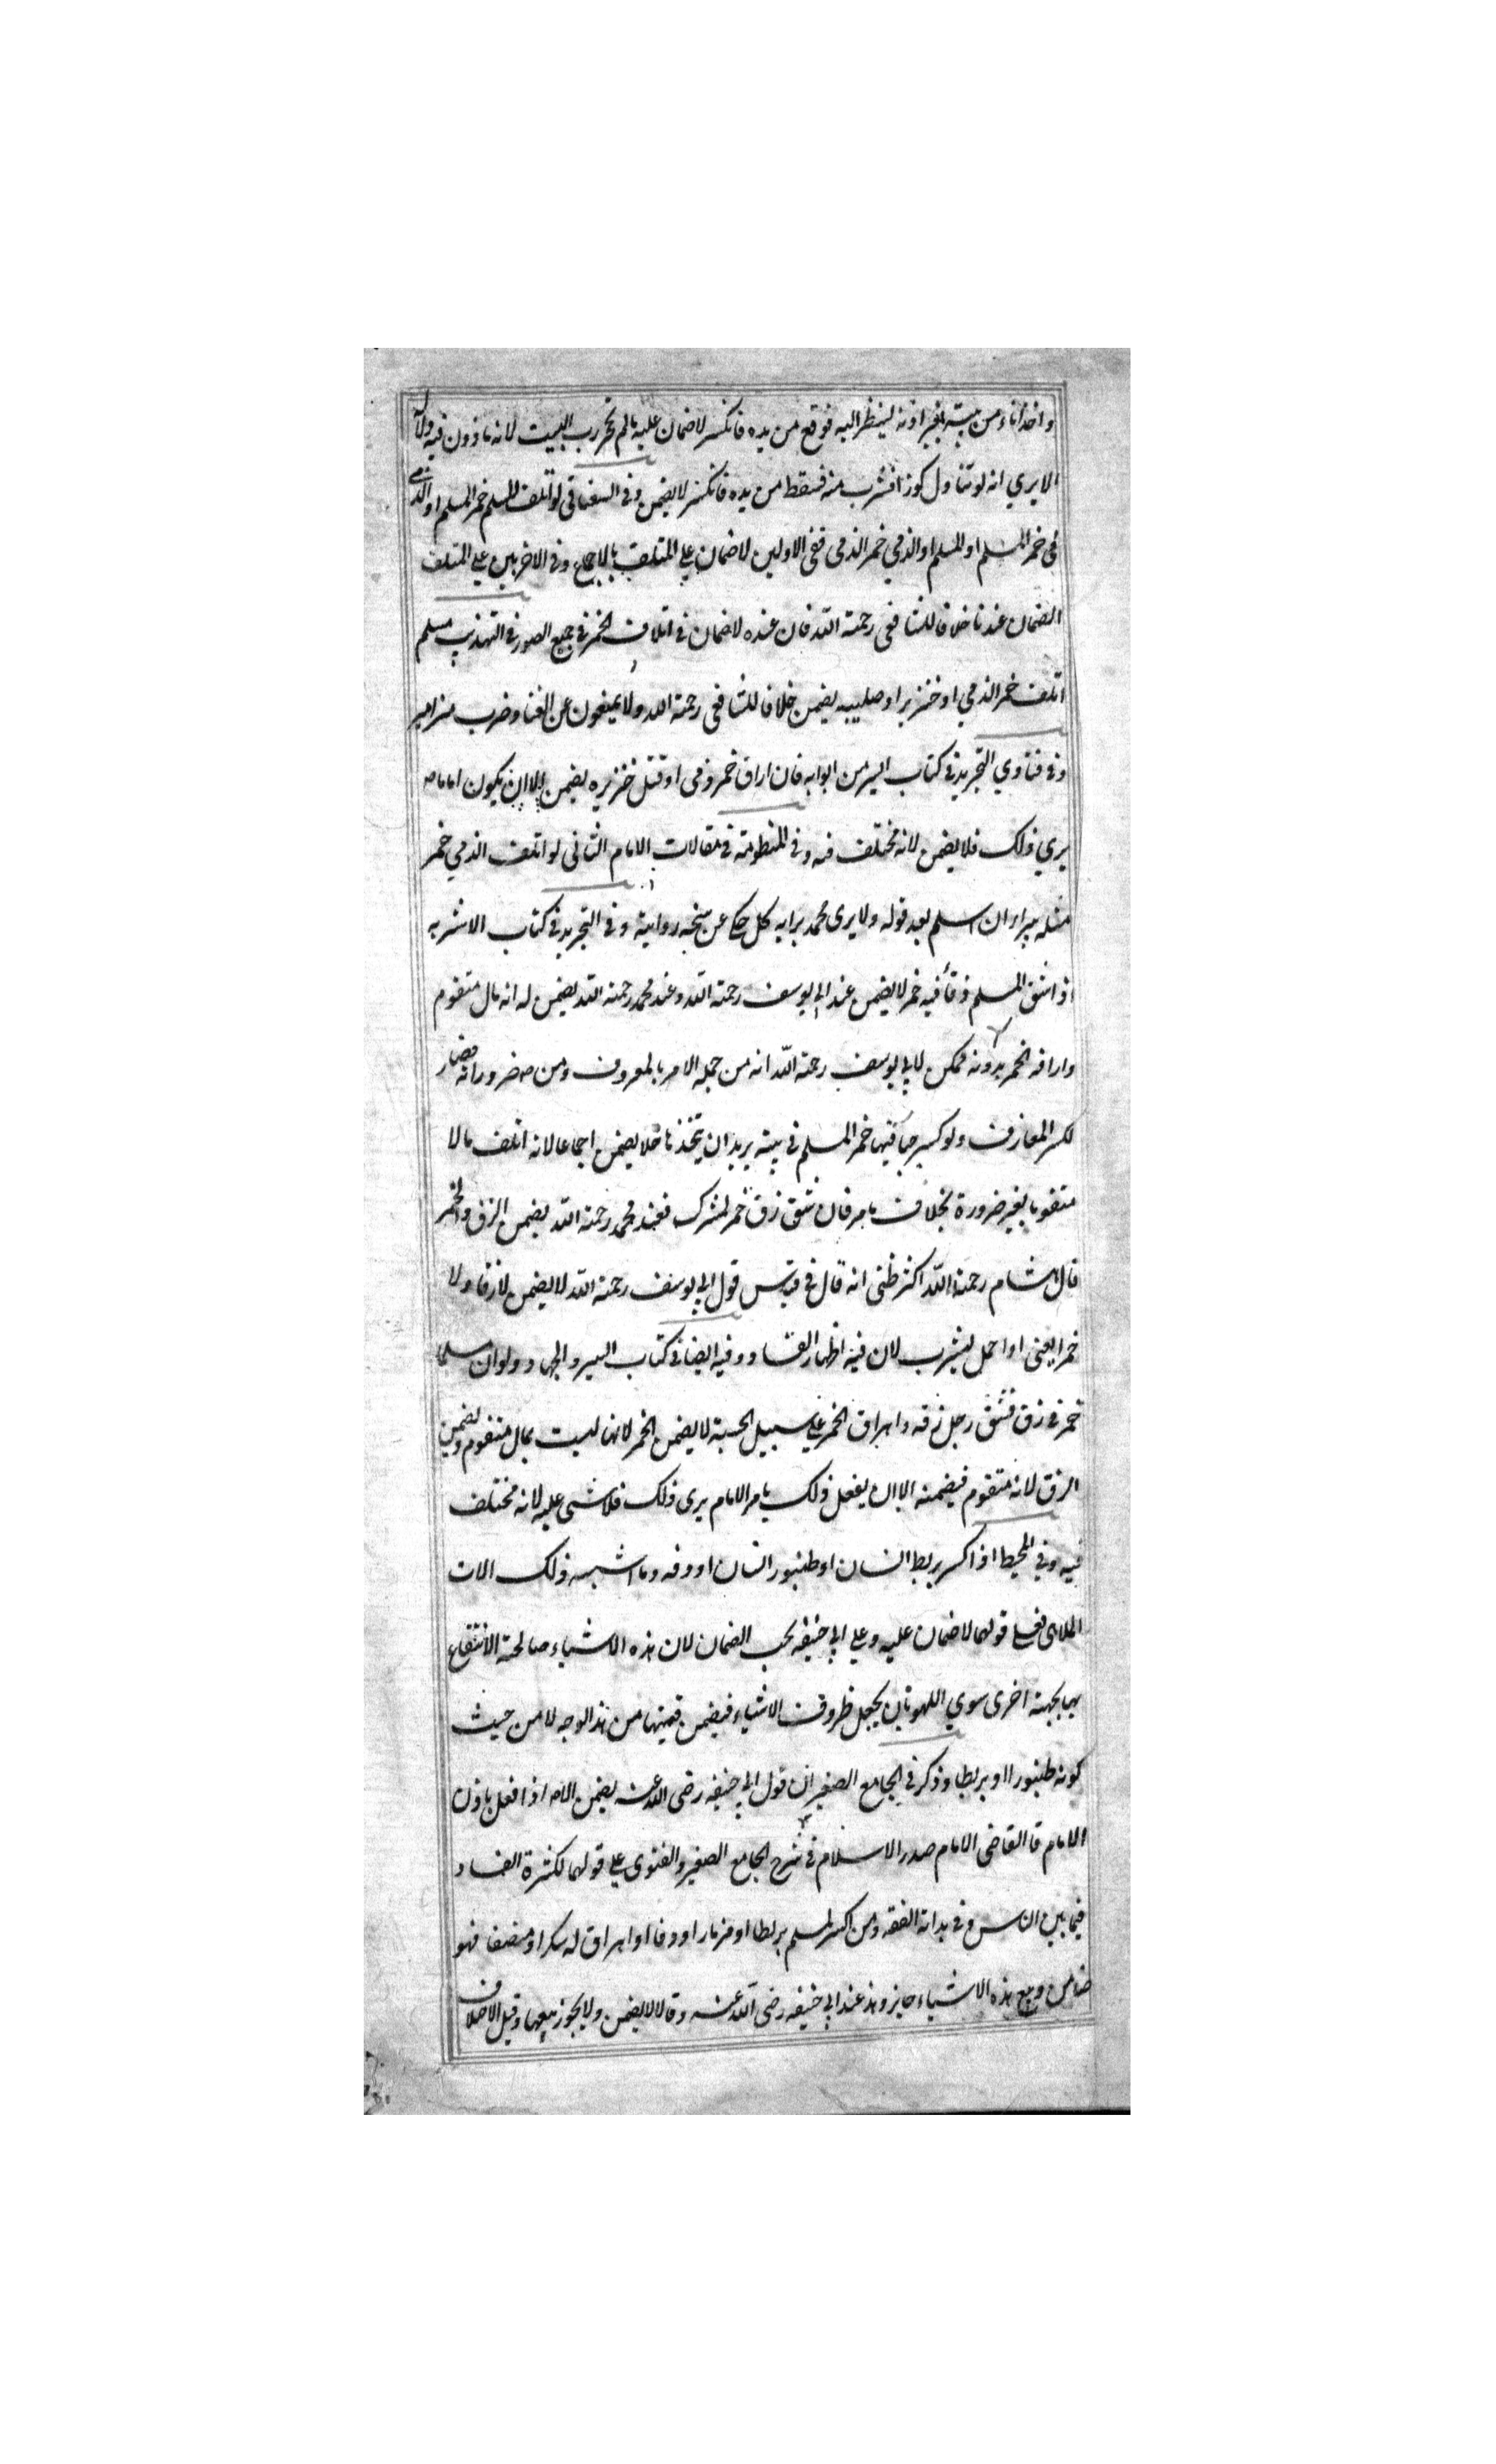 واخذ اناء من بيته بغير اذنه لينظر اليه فوقع من يده فانكسر لا ضمان عليه مالم يحجر رب البيت لانه ماذون فيه دلالة
الا يري انه لو تناول كوزا فشرب منه فسقط من يده فانكسر لا يضمن وفي السغناقي لو اتلف المسلم خمر المسلم او الذمي
في خمر المسلم او المسلم او الذمي خمر الذمي ففي الاولين لا ضمان علي المتلف بالاجماع وفي الاخريين علي المتلف
الضمان عندنا خلافا للشافعي رحمة الله فان عنده لا ضمان في اتلاف الخمر في جميع الصور في التهذيب مسلم
اتلف خمر الذمي او خنزيرا وصليبه يضمن خلافا للشافعي رحمة الله ولا يمنعون عن الغنا وضرب مزامير
وفي فتاوي التجريد في كتاب السير من ابوابه فان اراق خمر ذمي او قتل خنزيره يضمن الا ان يكون اماما
يري ذلك فلا يضمن لانه مختلف فيه وفي المنظومة في مقالات الامام الثاني لو اتلف الذمي خمر
مثله يبراء ان اسلم بعد قوله ولا يرى محمد برايه كل حكى عن شيخه رواية وفي التجريد في كتاب الاشربه
اذا شق المسلم زقا فيه خمر لا يضمن عند ابي يوسف رحمة الله وعند محمد رحمة الله يضمن له انه مال متقوم
واراقه الخمر بدونه ممكن لابي يوسف رحمة الله انه من جملة الامر بالمعروف ومن ضروراته فصار
لكسر المعازف ولو كسر حبا فيها خمر المسلم في بيته يريد ان يتخذها خلا يضمن اجماعا لانه اتلف مالا
متقوما بغير ضرورة بخلاف ما مر فان شق زق خمر لمشرك فعند محمد رحمة الله يضمن الزق والخمر
قال هشام رحمة الله اكثر ظني انه قال في قياس قول ابي يوسف رحمة الله لا يضمن لا زقا ولا
خمرا يعني اذا حمل ليشرب لان فيه اظهار الفساد وفيه ايضا في كتاب السير والجهاد ولو ان مسلما
خمر في زق فشق رجل زقه واهراق الخمر علي سبيل الحسبة لا يضمن الخمر لانها ليست بمال متقوم ويضمن
الزق لانه متقوم فيضمنه الا ان يفعل ذلك بامر الامام يرى ذلك فلا شي عليه لانه مختلف
فيه وفي المحيط اذا كسر بربط انسان او طنبور انسان او دفه وما اشبه ذلك الات
الملاهي فعلي قولهما لا ضمان عليه وعلي ابي حنيفه يجب الضمان لان هذه الاشياء صالحة الانتفاع
بها بجهة اخرى سوي اللهو بان يجعل ظروف الاشياء فيضمن قيمتها من هذا الوجه لا من حيث
كونه طنبورا او بربطا وذكر في الجامع الصغير ان قول ابي حنيفه رضى الله عنه يضمن الا اذا فعل باذن
الامام قا القاضي الامام صدر الاسلام في شرح الجامع الصغير والفتوى علي قولهما لكثرة الفساد
فيما بين الناس وفي هداية الفقه ومن اكسر لمسلم بربطا او مزمارا او دفا او اهراق له سكرا او منصفا فهو
ضامن وبيع هذه الاشياء جايز وهذ عند ابي حنيفه رضى الله عنه وقالا لا يضمن ولا يجوز بيعها وقيل الاختلاف